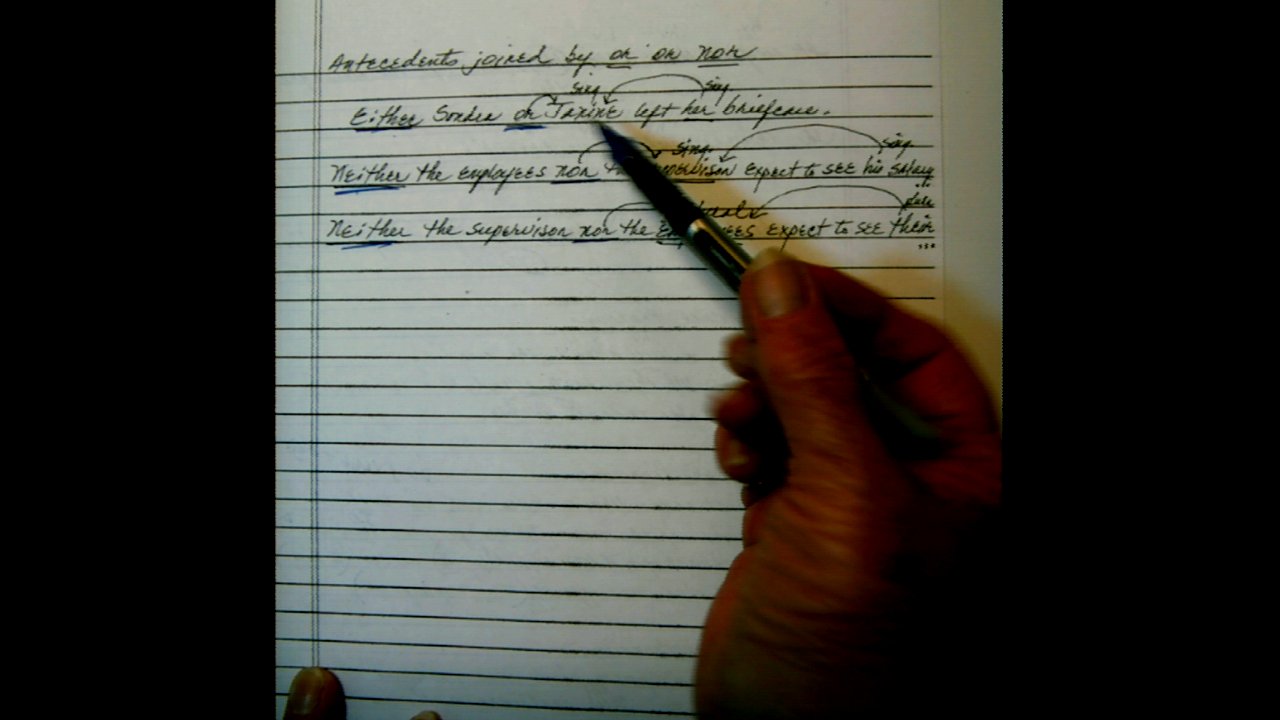 Antecedents joined by or or nor
sing sing.
Either Sondra or Janine left her briefcase.
sing. sing.
Neither the employees nor supervisor expect to see his salary
Neither the supervisor nor the expect to see their